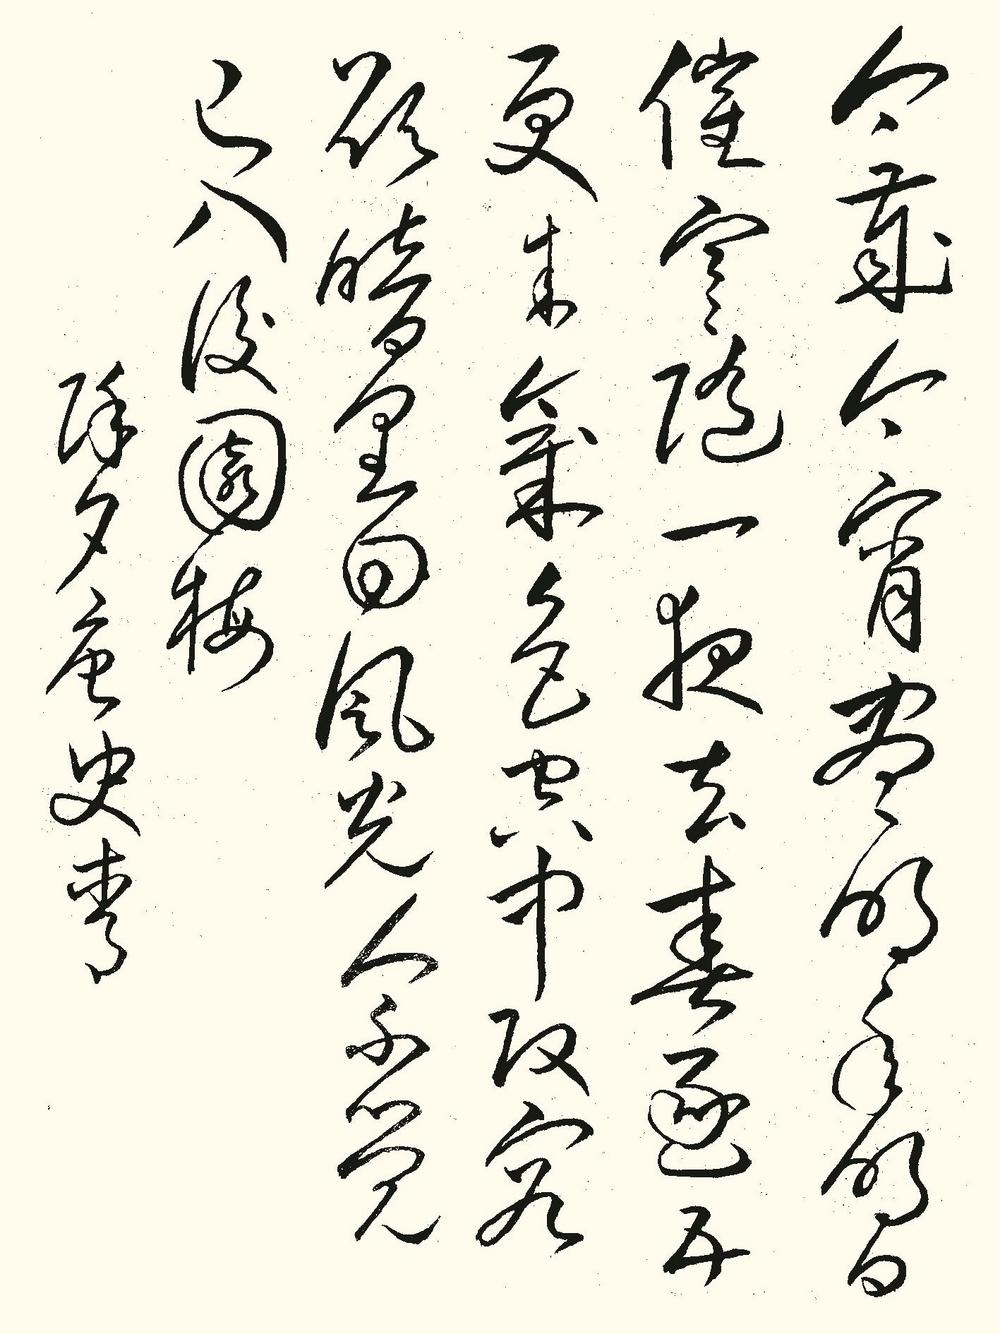 今歲今宵盡明年明日
催寒隨一夜去春逐五
更来氣色空中改容
顏暗里回風光人不覺
已入後園梅
除夕唐史青